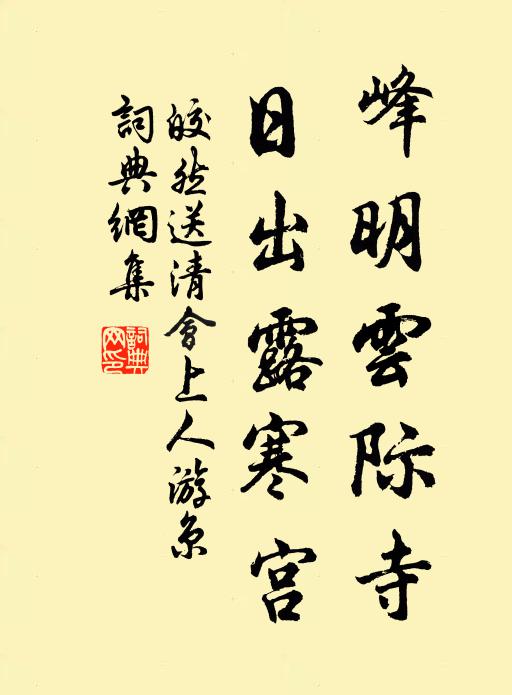 峰明雲际寺
日出露寒宫
皎然送清會上人游京
詞典網集
詞典網印